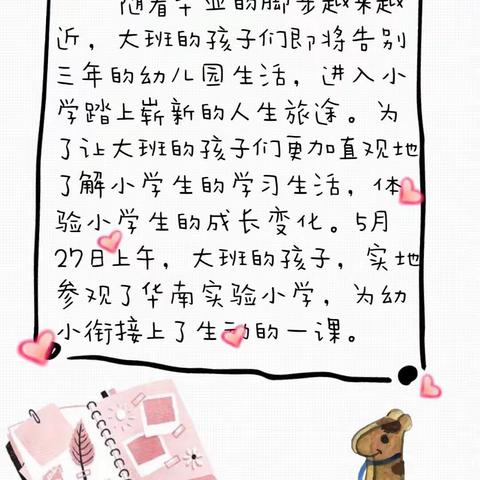 随着毕业的脚步越来越
近，大班的孩子们即将告别
三年的幼儿园生活，进入小
学踏上崭新的人生旅途。为
了让大班的孩子们更加直观地
了解小学生的学习生活，体
验小学生的成长变化。5月
27日上午，大班的孩子，实地
参观了华南实验小学，为幼
小衔接上了生动的一课。